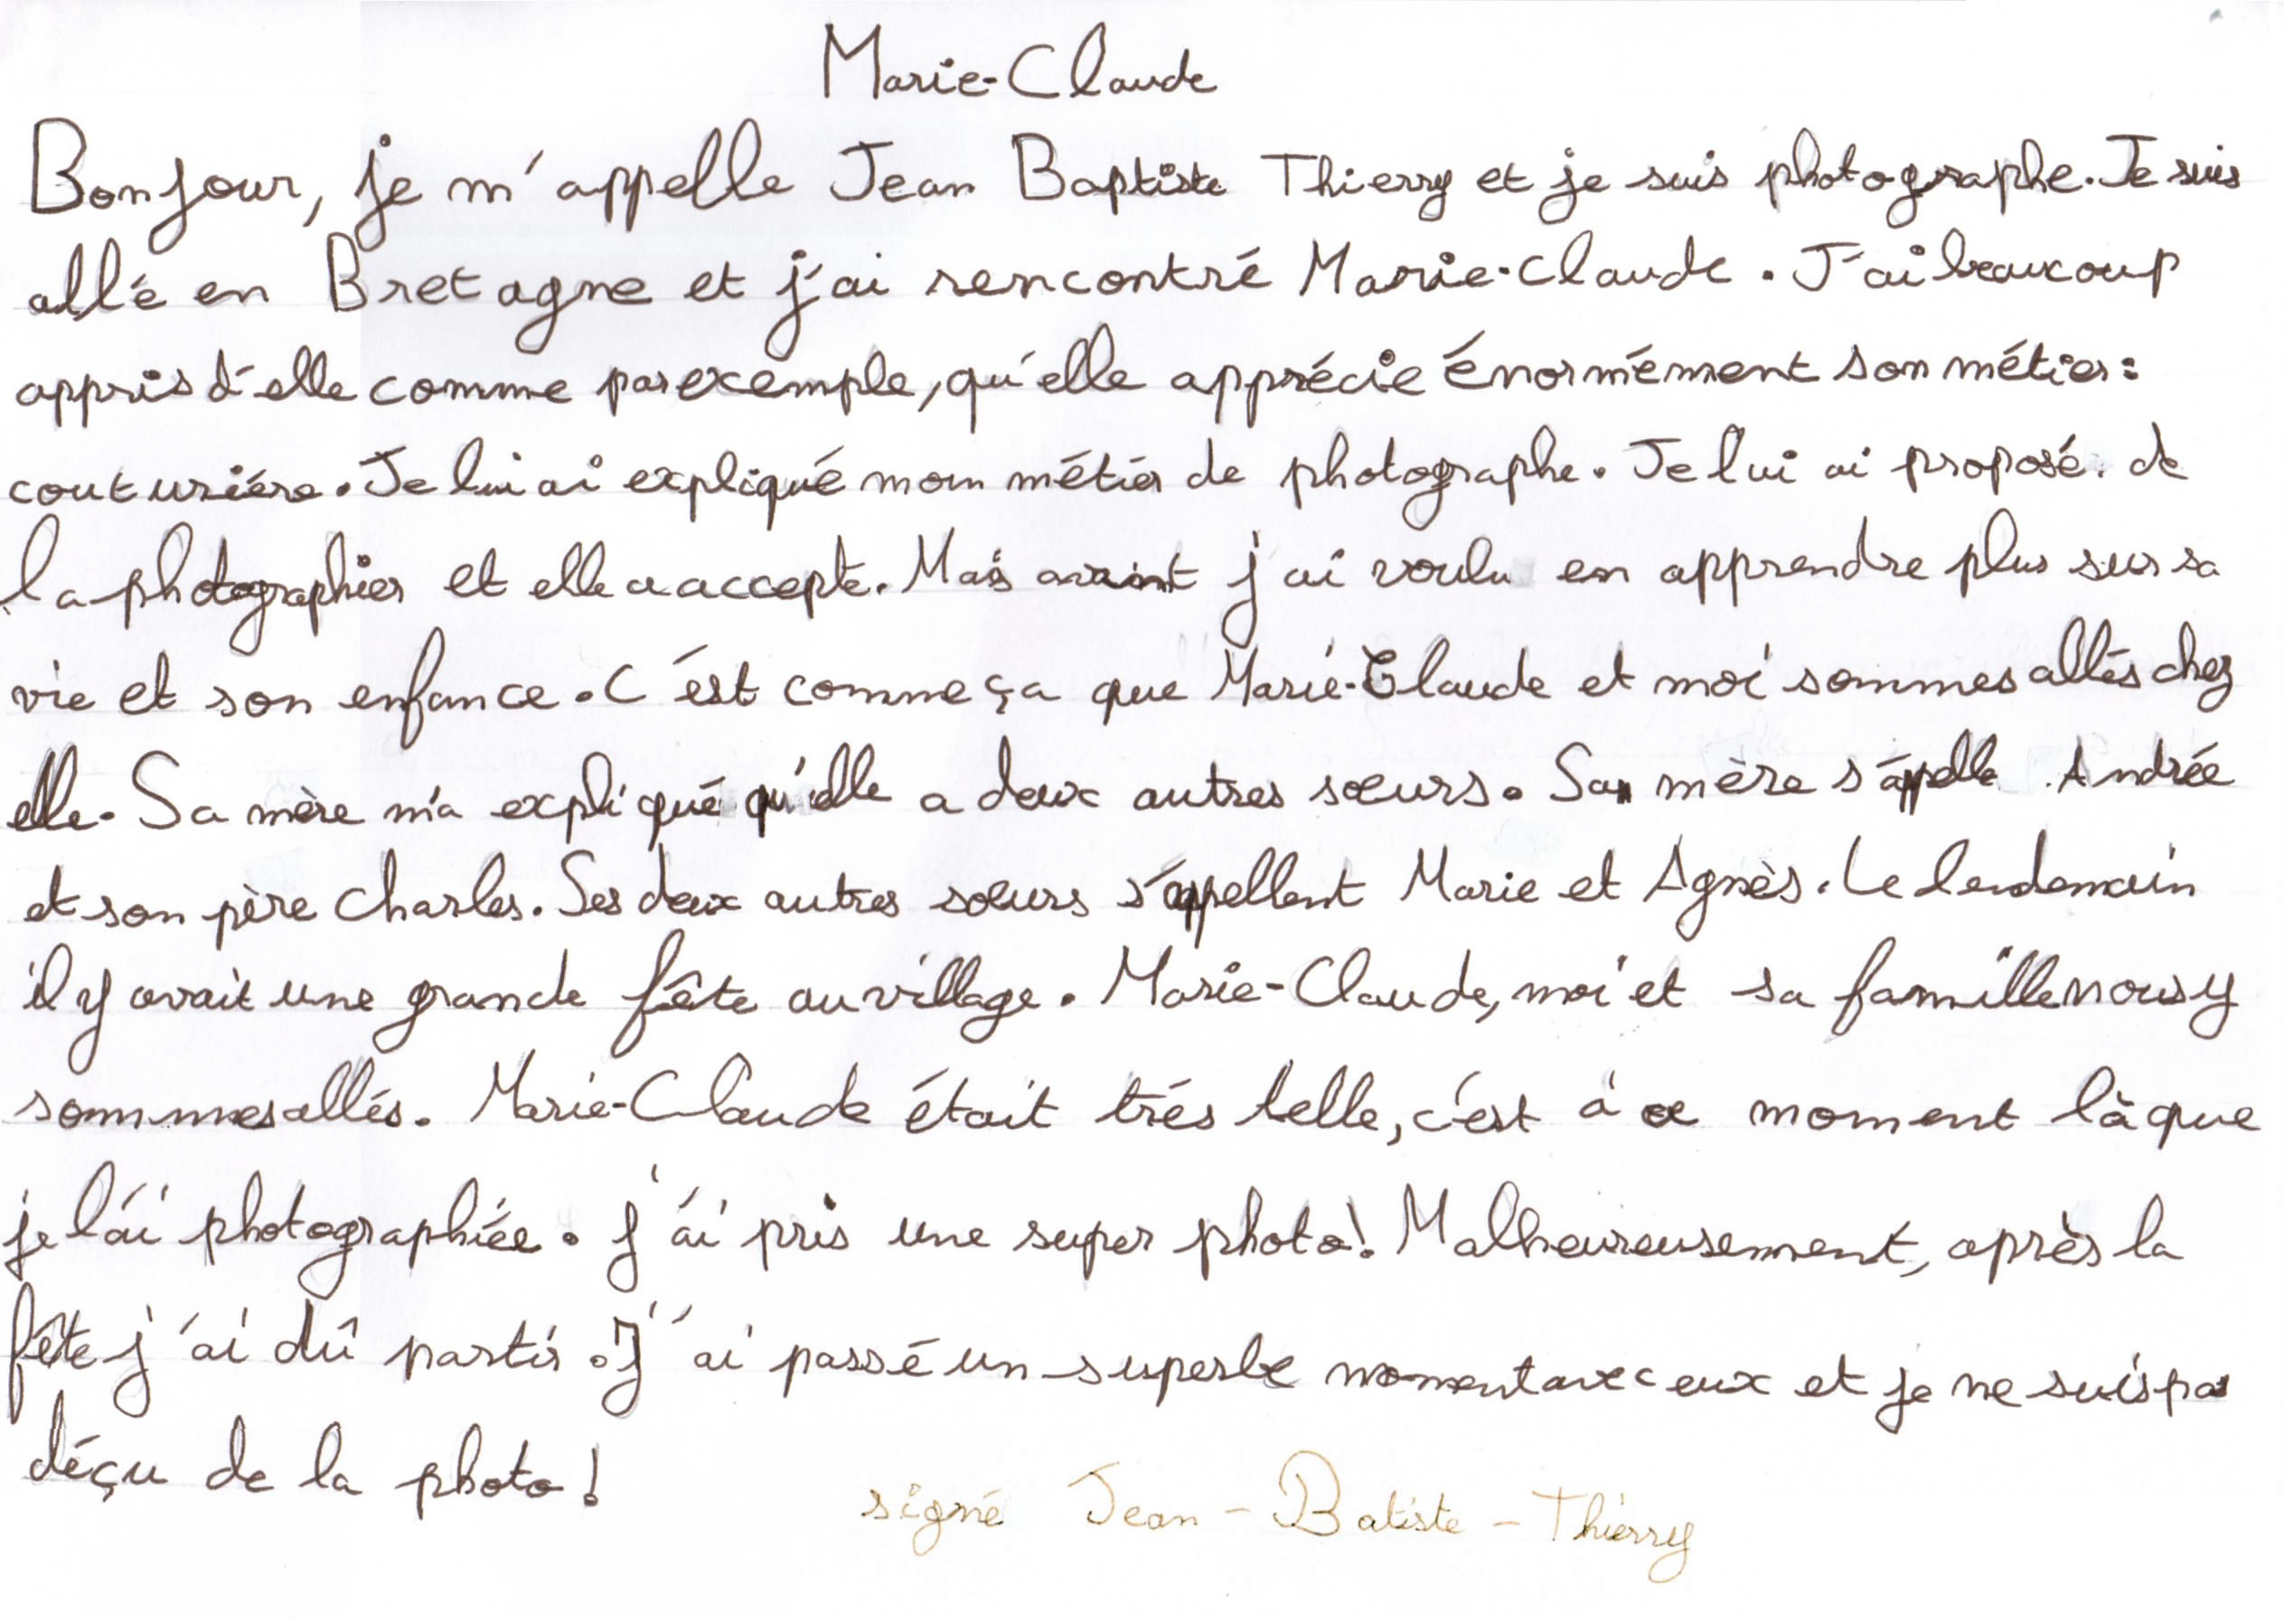 Marie-Claude
Bonjour, je m'appelle Jean Baptiste Thierry et je suis photographe. Je suis
allé en Bretagne et j'ai rencontré Marie-Claude. J'ai beaucoup
appris d'elle comme par exemple, qu'elle apprécie énormément son métier :
couturière. Je lui ai expliqué mon métier de photographe. Je lui ai proposé de
la photographier et elle a accepté. Mais avant j'ai voulu en apprendre plus sur sa
vie et son enfance. C'est comme ça que Marie-Claude et moi sommes allés chez
elle. Sa mère m'a expliqué qu'elle a deux autres sœurs. Sa mère s'appelle Andrée
et son père Charles. Ses deux autres sœurs s'appellent Marie et Agnès. Le lendemain
il y avait une grande fête au village. Marie-Claude, moi et sa famille nous y
sommes allés. Marie-Claude était trés belle, c'est à ce moment là que
je l'ai photographiée. J'ai pris une super photo! Malheureusement, après la
fête j'ai dû partir. J'ai passé un superbe moment avec eux et je ne suis pas
déçu de la photo!
signé Jean-Batiste-Thierry